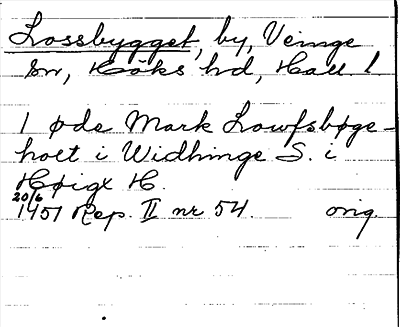 Lossbygget, by, Veinge
sn, Höks hd, Hall l
1 øde Mark Lowfsbøge-
holt i Widhinge S. i
Høigx H.
20/6
1451 Rep. II nr 54. orig.